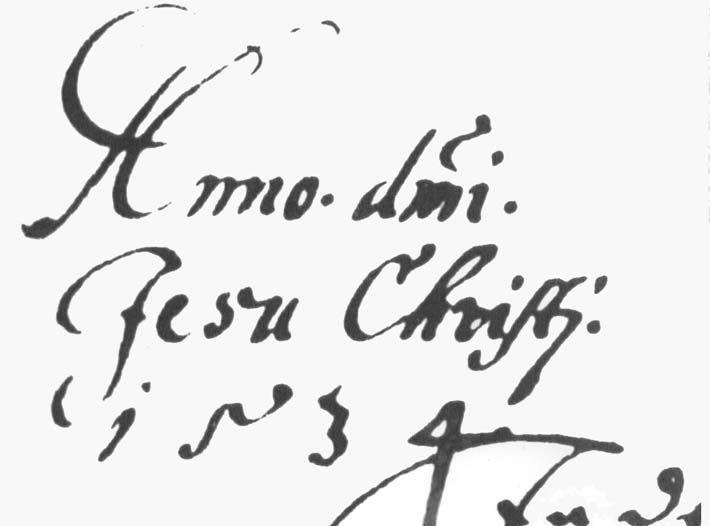 Anno. dm̃i.
Jesu Christi:
1534